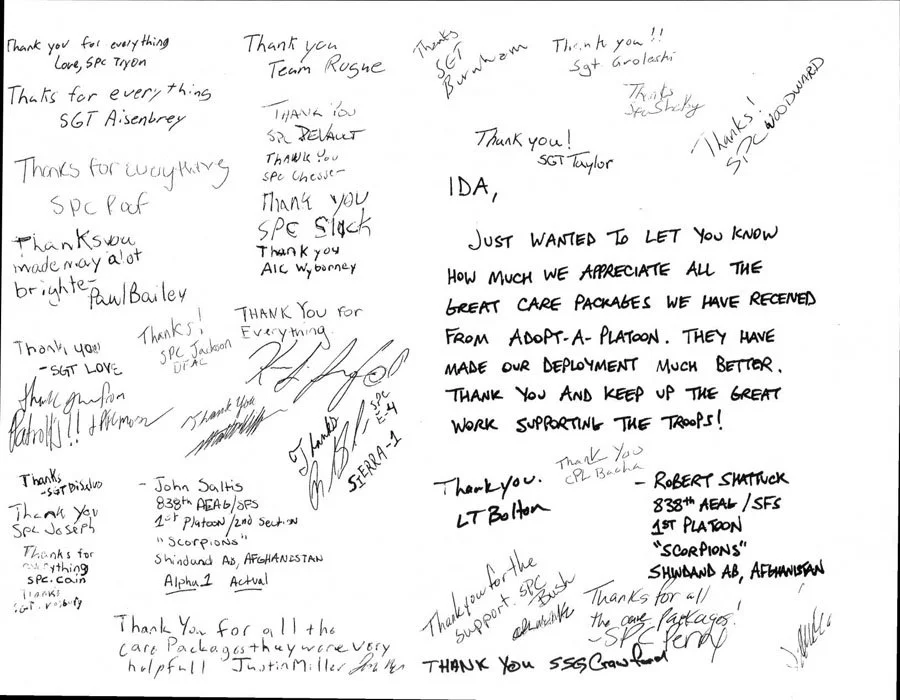 Thank you for everything
Love, SPC Tryon
Thaks for everything
SGT Aisenbrey
Thanks for everything
SPC Poof
Thanks you
made may a lot
brighter
Paul Bailey
Thank you
- SGT LOVE
Thanks!
SPC Jackson
DFAC
Thank you from
Patrol 1's!!
Thank you
Thank you
Team Rogue
THANK YOU
SPC DEVAULT
THANK YOU
SPC
THANK YOU
SPC Slack
Thank you
A1C Wyborney
THANK YOU FOR
Everything.
Thanks
SPC
E-4
SIERRA-1
Thanks
- SGT
Thank You
SPC Joseph
Thanks for
everything
SPC. Cain
Thanks
SGT.
- John Saltis
838th AEAG/SFS
1st Platoon/2nd Section
"Scorpions"
Shindand AB, AFGHANISTAN
Alpha 1 Actual
Thank You for all the
care Packages they were very
helpfull Justin Miller
Thanks
SGT
Burnham
Thank you!!
Sgt.
Thanks
Thanks!
SPC WOODWARD
Thank you!
SGT Taylor
IDA,
JUST WANTED TO LET YOU KNOW
HOW MUCH WE APPRECIATE ALL THE
GREAT CARE PACKAGES WE HAVE RECEIVED
FROM ADOPT-A-PLATOON. THEY HAVE
MADE OUR DEPLOYMENT MUCH BETTER.
THANK YOU AND KEEP UP THE GREAT
WORK SUPPORTING THE TROOPS!
Thank You
CPL Bacha
Thank you.
LT Bolton
- ROBERT SHATTUCK
838th AEAG/SFS
1ST PLATOON
"SCORPIONS"
SHINDAND AB, AFGHANISTAN
Thank you for the
support. SPC
Bush
Thanks for all
the care packages!
- SPC Penny
THANK YOU SSG Crawford